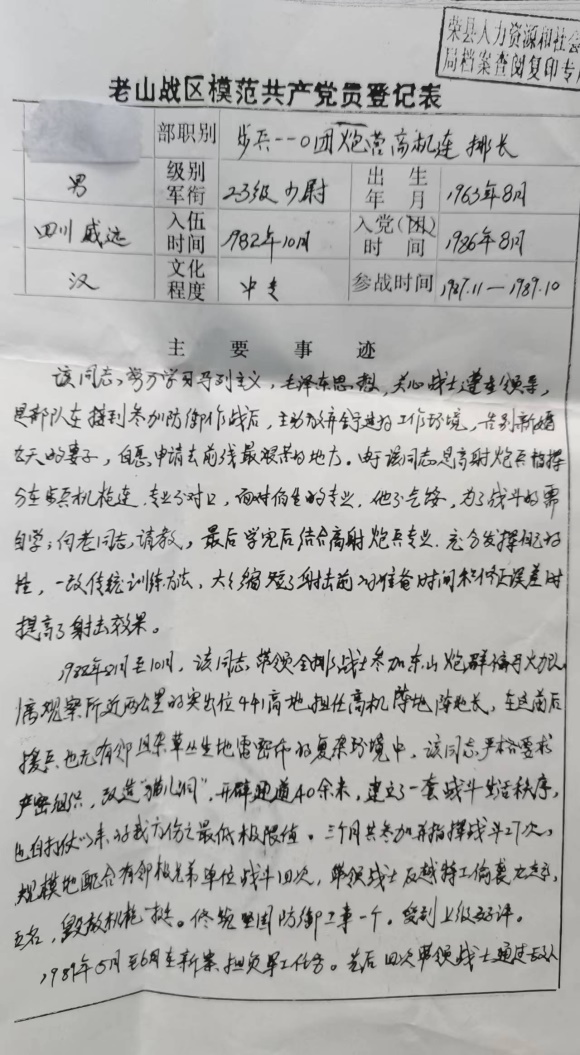 荣县人力资源和社会
局档案查阅复印专
老山战区模范共产党员登记表
部职别 步兵一一〇团炮营高机连 排长
男 级别军衔 23级 少尉 出生年月 1963年8月
四川威远 入伍时间 1982年10月 入党(团)时间 1986年8月
汉 文化程度 中专 参战时间 1987.11—1989.10
主要事迹
该同志努力学习马列主义,毛泽东思想,关心战士尊重领导,
部队在接到参加防御作战后,主动放弃舒适的工作环境,告别新婚
天的妻子,自愿申请去前线最艰苦的地方。由于该同志是高射炮兵指挥
分在步兵机枪连,专业不对口,面对陌生的专业,他不气馁,为了战斗的需
自学,向老同志请教,最后学完后结合高射炮兵专业,充分发挥
性,一改传统训练方法,大大缩短了射击前的准备时间和修正误差时
提高了射击效果。
1988年 月至10月,该同志带领全排战士参加东山炮群
属观察所近两公里的突出位441高地担任高机阵地阵地长,在这前后
援兵也无右邻且杂草丛生地雷密布的复杂环境中,该同志严格要求
严密组织,改造“猫儿洞”,开辟通道40余米,建立了一套战斗生活秩序,
以来的我方伤亡最低极限值。三个月共参加并指挥战斗27次,
规模地配合右邻 兄弟单位战斗四次,带领战士反越特工偷袭
五名,毁敌机枪 挺。修筑坚固防御工事一个,受到上级好评。
1989年5月至6月在新寨担负军工任务。先后四次带领战士通过